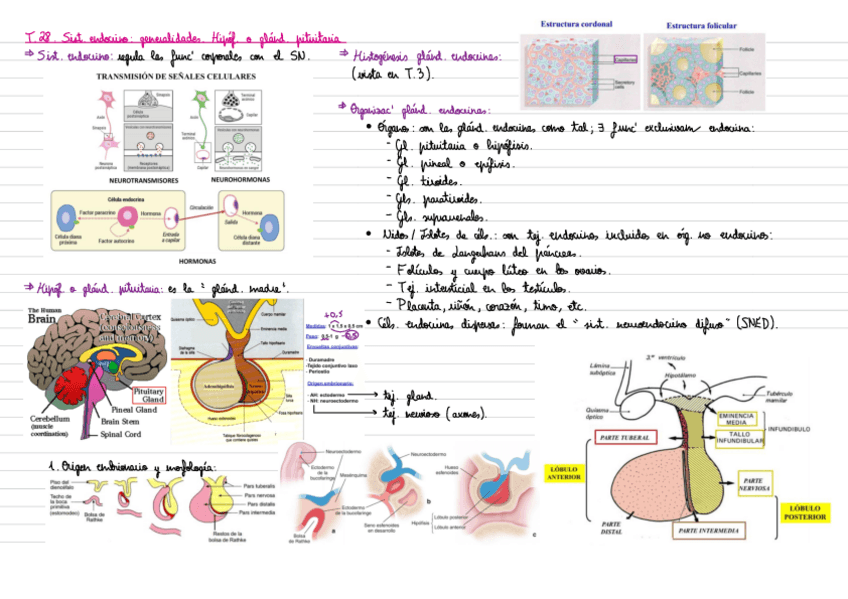 T.28. Sist. endocrino: generalidades. Hipóf. o glánd. pituitaria
⇒ Sist. endocrino: regula las func' corporales con el SN.
TRANSMISIÓN DE SEÑALES CELULARES
Sinapsis
Axón
Célula postsináptica
Terminal axónico
Capilar
Terminal axónico
Sinapsis
Axón
Neurona postsináptica
Receptores
(membrana postsináptica)
Terminal axónico
Capilar
NEUROTRANSMISORES
NEUROHORMONAS
Célula endocrina
Factor paracrino
Hormona
Circulación
Hormona
Célula diana próxima
Factor autocrino
Entrada a capilar
Salida
Célula diana distante
HORMONAS
⇒ Hipóf. o glánd. pituitaria: es la "glánd. madre".
The Human
Brain
Cerebral Cortex
Pituitary Gland
Pineal Gland
Cerebellum
(muscle coordination)
Brain Stem
Spinal Cord
Quiasma óptico
Cuerpo mamilar
Eminencia media
Tallo hipofisario
Duramadre
Diafragma de la silla
Adenohipófisis
Hueso esfenoides
Fosa hipofisaria
±0,5
Medidas: 1 x 1,5 x 0,5 cm
Envueltas conjuntivas:
- Duramadre
-Tejido conjuntivo laxo
- Periostio
Origen embrionario:
- AH: ectodermo → tej. gland.
- NH: neuroectodermo → tej. nervioso (axones).
1. Origen embrionario y morfología:
Piso del diencéfalo
Techo de la boca primitiva (estomodeo)
Bolsa de Rathke
Pars tuberalis
Pars nervosa
Pars distalis
Pars intermedia
Restos de la bolsa de Rathke
Neuroectodermo
Ectodermo de la bucofaringe
Mesénquima
Ectodermo de la bucofaringe
Bolsa de Rathke
a
Neuroectodermo
Seno esfenoides en desarrollo
b
Hueso esfenoides
Hipófisis
Lóbulo posterior
Lóbulo anterior
c
⇒ Histogénesis glánd. endocrinas:
(vista en T.3).
Estructura cordonal
Capillaries
Secretory cells
Estructura folicular
Follicle
Capillaries
Follicle
⇒ Organizac' glánd. endocrinas:
• Órganos: son las glánd. endocrinas como tal; ∃ func' exclusivam. endocrina:
- Gl. pituitaria o hipófisis.
- Gl. pineal o epífisis.
- Gl. tiroides.
- Gls. paratiroides.
- Gls. suprarrenales.
• Nidos / Islotes de céls.: son tej. endocrinos incluidos en órg. no endocrinos:
- Islotes de Langerhans del páncreas.
- Folículos y cuerpo lúteo en los ovarios.
- Tej. intersticial en los testículos.
- Placenta, riñón, corazón, timo, etc.
• Céls. endocrinas dispersas: forman el "sist. neuroendocrino difuso" (SNED).
3er ventrículo
Lámina supióptica
Hipotálamo
Quiasma óptico
Tubérculo mamilar
EMINENCIA MEDIA
TALLO INFUNDIBULAR
INFUNDIBULO
PARTE TUBERAL
LÓBULO ANTERIOR
PARTE NERVIOSA
LÓBULO POSTERIOR
PARTE DISTAL
PARTE INTERMEDIA